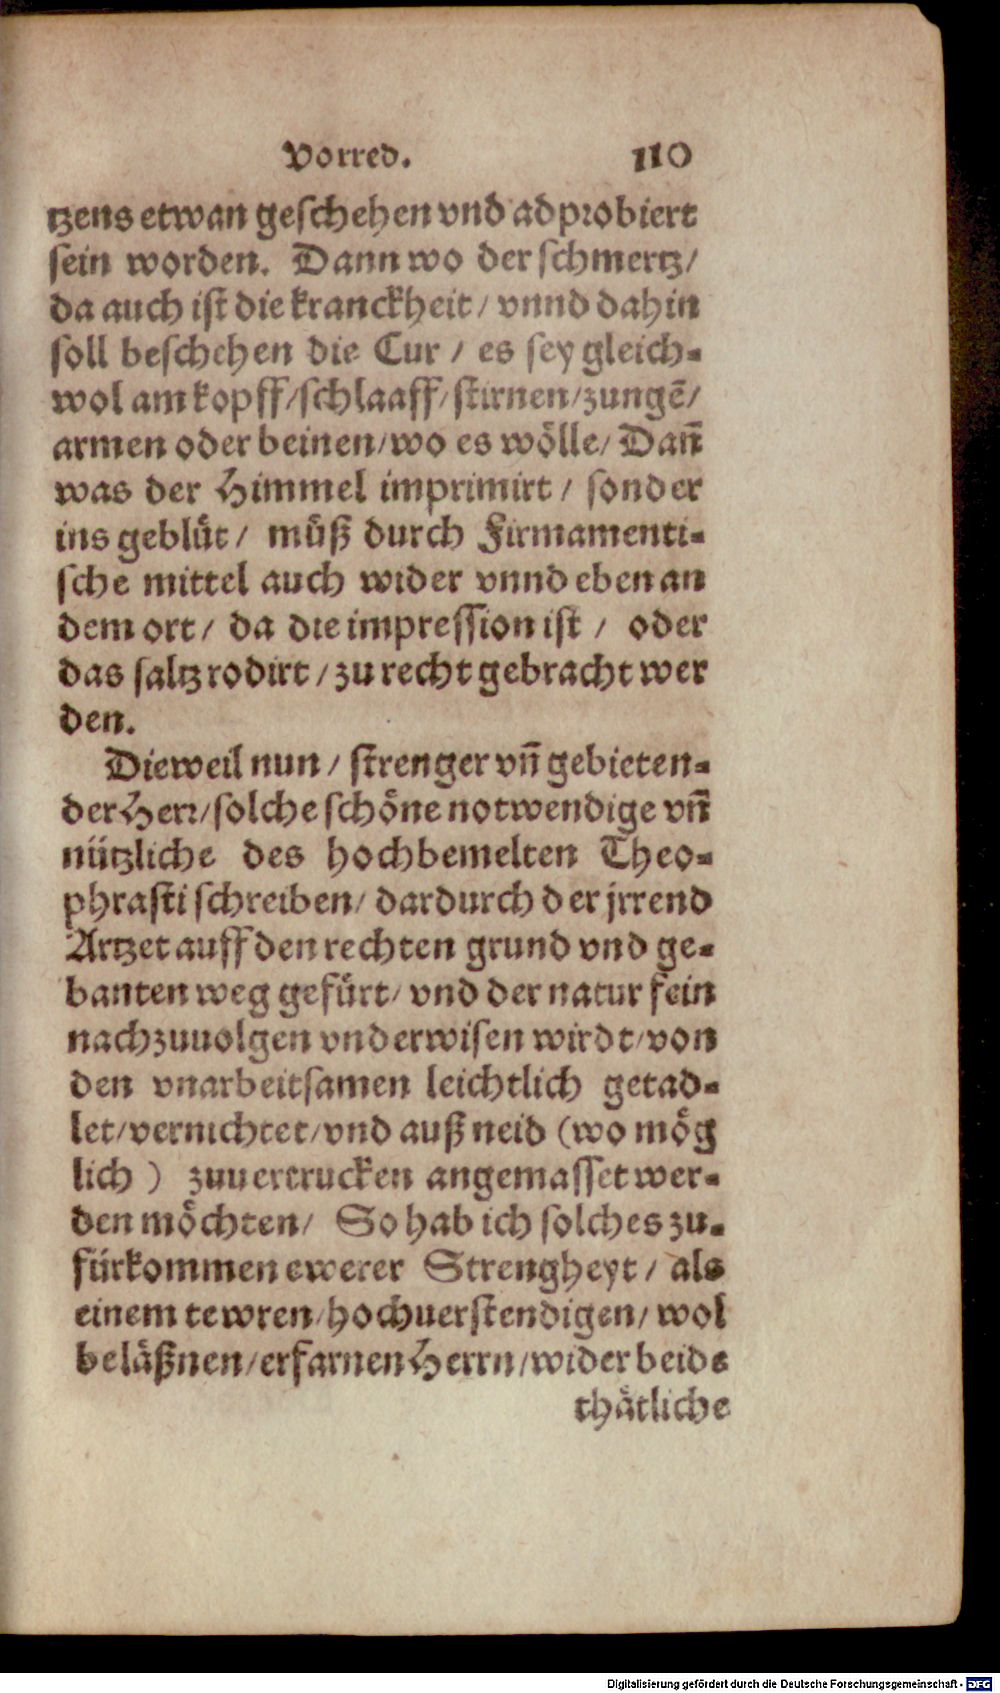 Vorred. 110
tzens etwan geschehen vnd adprobiert
sein worden. Dann wo der schmertz/
da auch ist die kranckheit/ vnnd dahin
soll beschehen die Cur/ es sey gleich-
wol am kopff/schlaaff/stirnen/zungē/
armen oder beinen/wo es wölle/ Dañ
was der Himmel imprimirt/ sonder
ins geblüt/ müß durch Firmamenti-
sche mittel auch wider vnnd eben an
dem ort/ da die impression ist/ oder
das saltz rodirt/zu recht gebracht wer
den.
Dieweil nun/ strenger vñ gebieten-
der Herr/solche schöne notwendige vñ
nützliche des hochbemelten Theo-
phrasti schreiben/ dardurch der jrrend
Artzet auff den rechten grund vnd ge-
banten weg gefürt/ vnd der natur fein
nachzuuolgen vnderwisen wirdt/von
den vnarbeitsamen leichtlich getad-
let/vernichtet/vnd auß neid (wo mög
lich) zuuertrucken angemasset wer-
den möchten/ So hab ich solches zu-
fürkommen ewerer Strengheyt/ als
einem tewren/hochuerstendigen/ wol
beläßnen/erfarnen Herrn/wider beide
thätliche
Digitalisierung gefördert durch die Deutsche Forschungsgemeinschaft - DFG